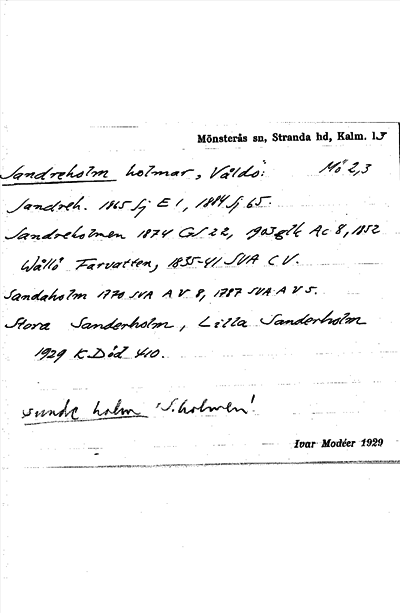 Mönsterås sn, Stranda hd, Kalm. l.
Sandreholm holmar, Våldö: Mö 2,3
Sandreh. 1865 Sj E 1, 1884 Sj 65.
Sandreholmen 1874 GS 22, 1903 glk Ac 8, 1852
Wållö Farvatten, 1835-41 SVA C V.
Sandaholm 1770 SVA A V 8, 1787 SVA A V 5.
Stora Sanderholm, Lilla Sanderholm
1929 K Död 410.
sunde holm 'S.holmen'.
Ivar Modéer 1929